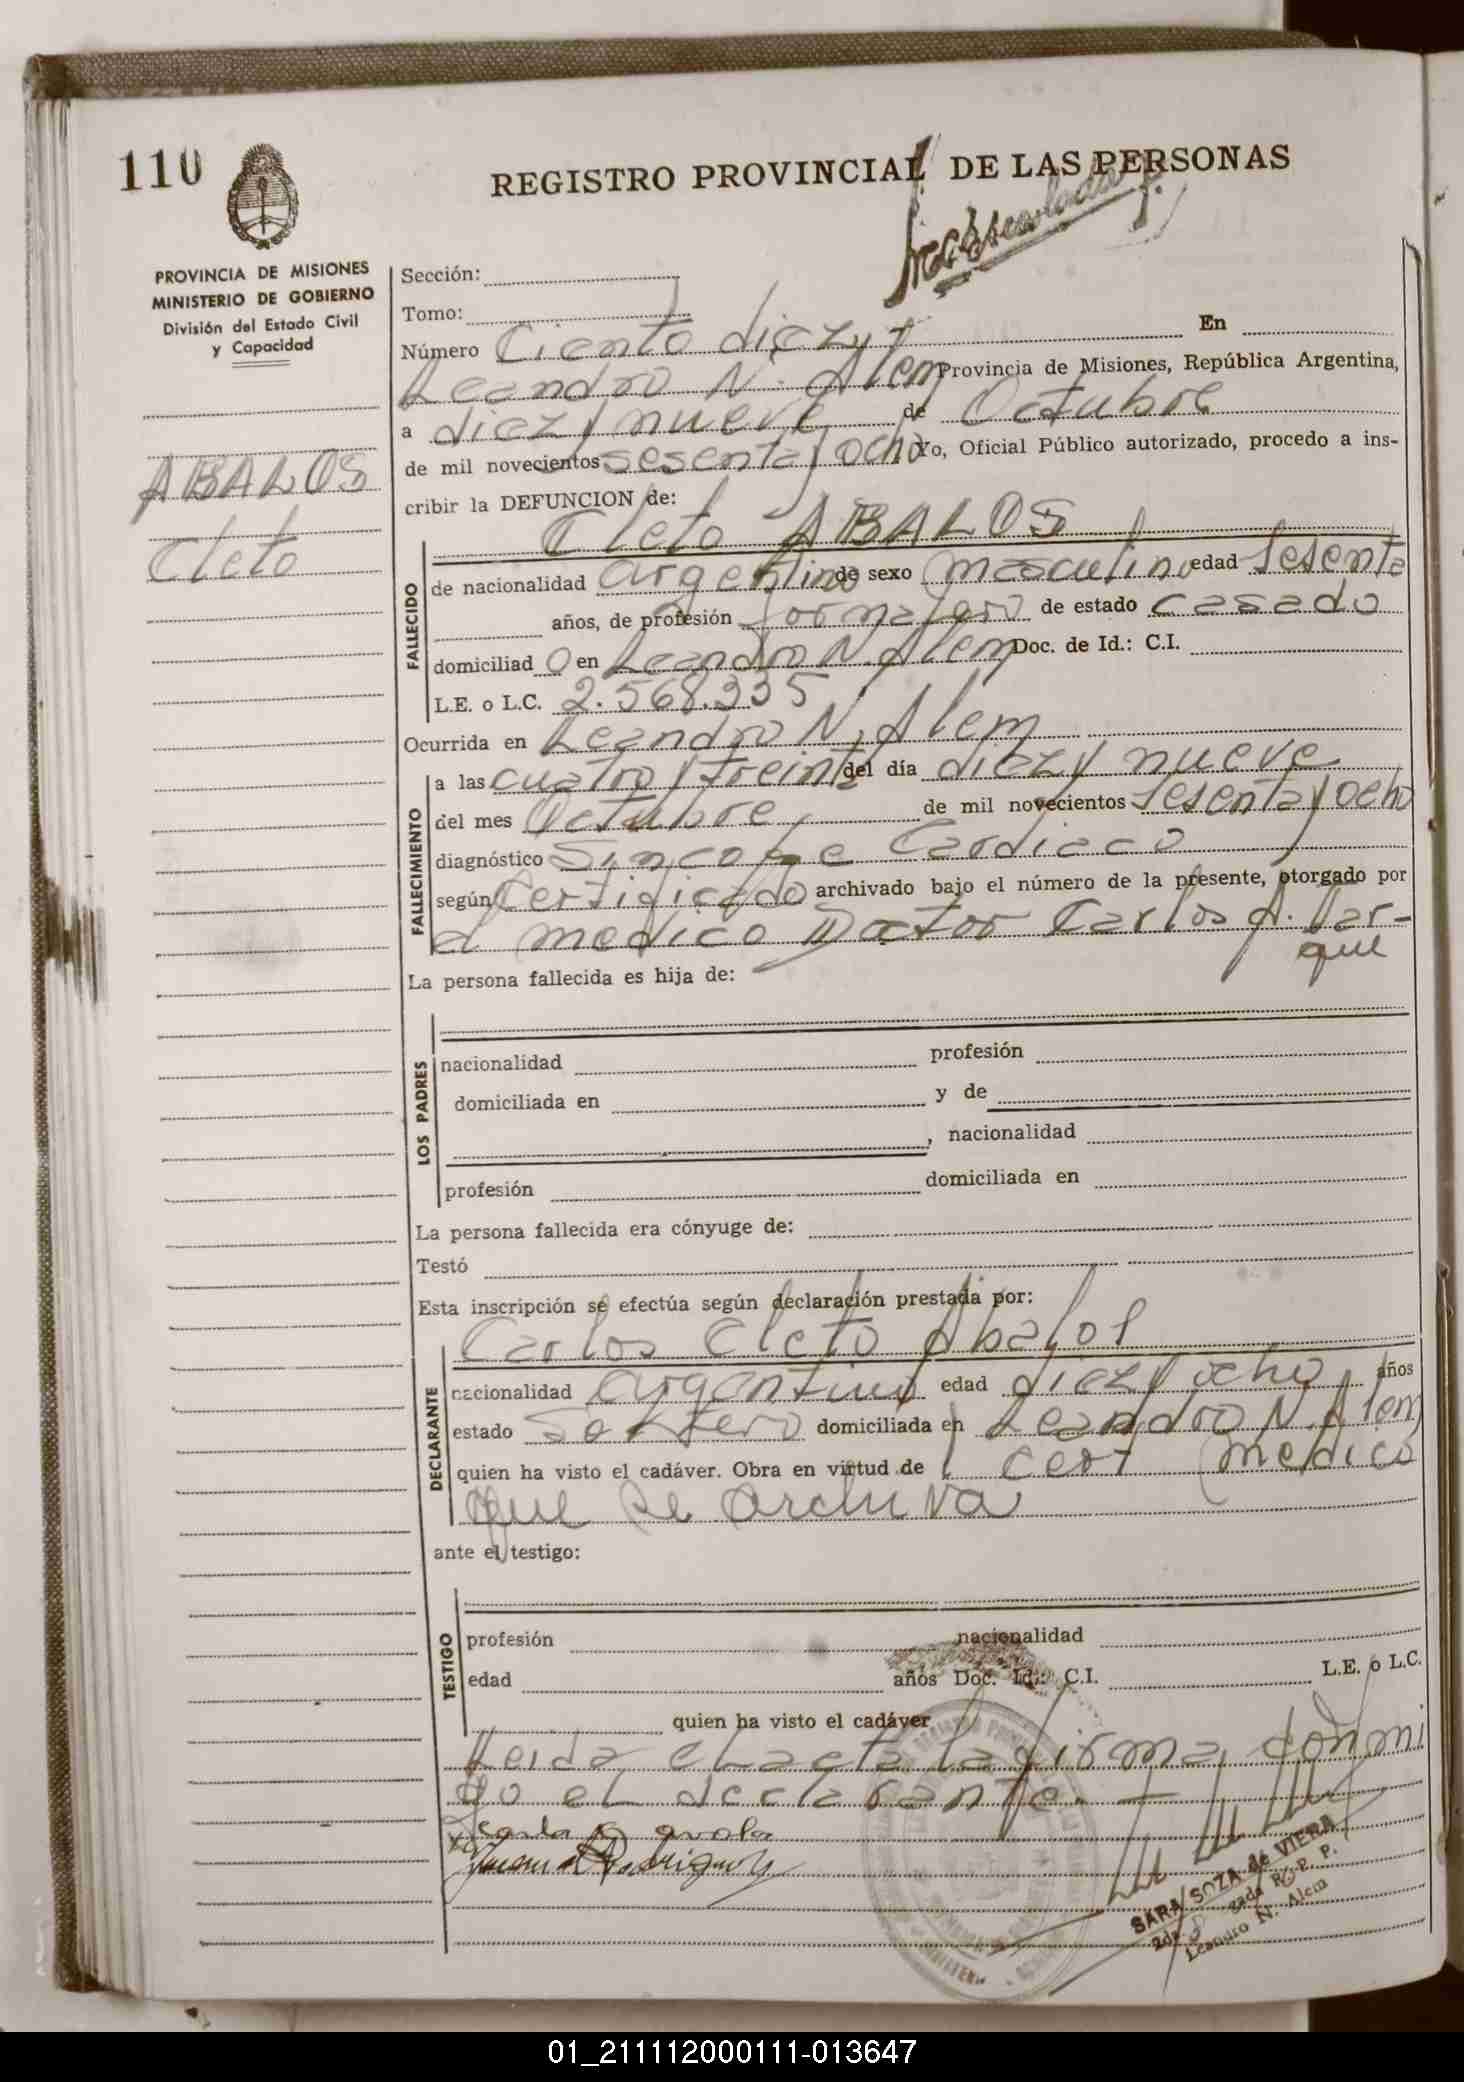 110
REGISTRO PROVINCIAL DE LAS PERSONAS
PROVINCIA DE MISIONES
MINISTERIO DE GOBIERNO
División del Estado Civil
y Capacidad
ABALOS
Cleto
Sección:
Tomo:
Número Ciento diez y En
Leandro N. Alem Provincia de Misiones, República Argentina,
a diez y nueve de Octubre
de mil novecientos sesenta y ocho Yo, Oficial Público autorizado, procedo a ins-
cribir la DEFUNCION de:
Cleto ABALOS
FALLECIDO
de nacionalidad argentino de sexo masculino edad sesenta
años, de profesión jornalero de estado casado
domiciliad o en Leandro N. Alem Doc. de Id.: C.I.
L.E. o L.C. 2.568.335
Ocurrida en Leandro N. Alem
FALLECIMIENTO
a las cuatro y treinta del día diez y nueve
del mes Octubre, de mil novecientos sesenta y ocho
diagnóstico Sincope Cardiaco
según Certificado archivado bajo el número de la presente, otorgado por
el medico Doctor Carlos A.
que
La persona fallecida es hija de:
LOS PADRES
nacionalidad profesión
domiciliada en y de
, nacionalidad
profesión domiciliada en
La persona fallecida era cónyuge de:
Testó
Esta inscripción se efectúa según declaración prestada por:
Carlos Cleto Abalos
DECLARANTE
nacionalidad argentino edad diez y ocho años
estado Soltero domiciliada en Leandro N. Alem
quien ha visto el cadáver. Obra en virtud de cert medico
que se archiva
ante el testigo:
TESTIGO
profesión nacionalidad
edad años Doc. Id.: C.I. L.E. o L.C.
quien ha visto el cadáver
Leida el acta la firma conmi
go el declarante. —
SARA SOZA de VIERA
R. P. P.
Leandro N. Alem
01_211112000111-013647